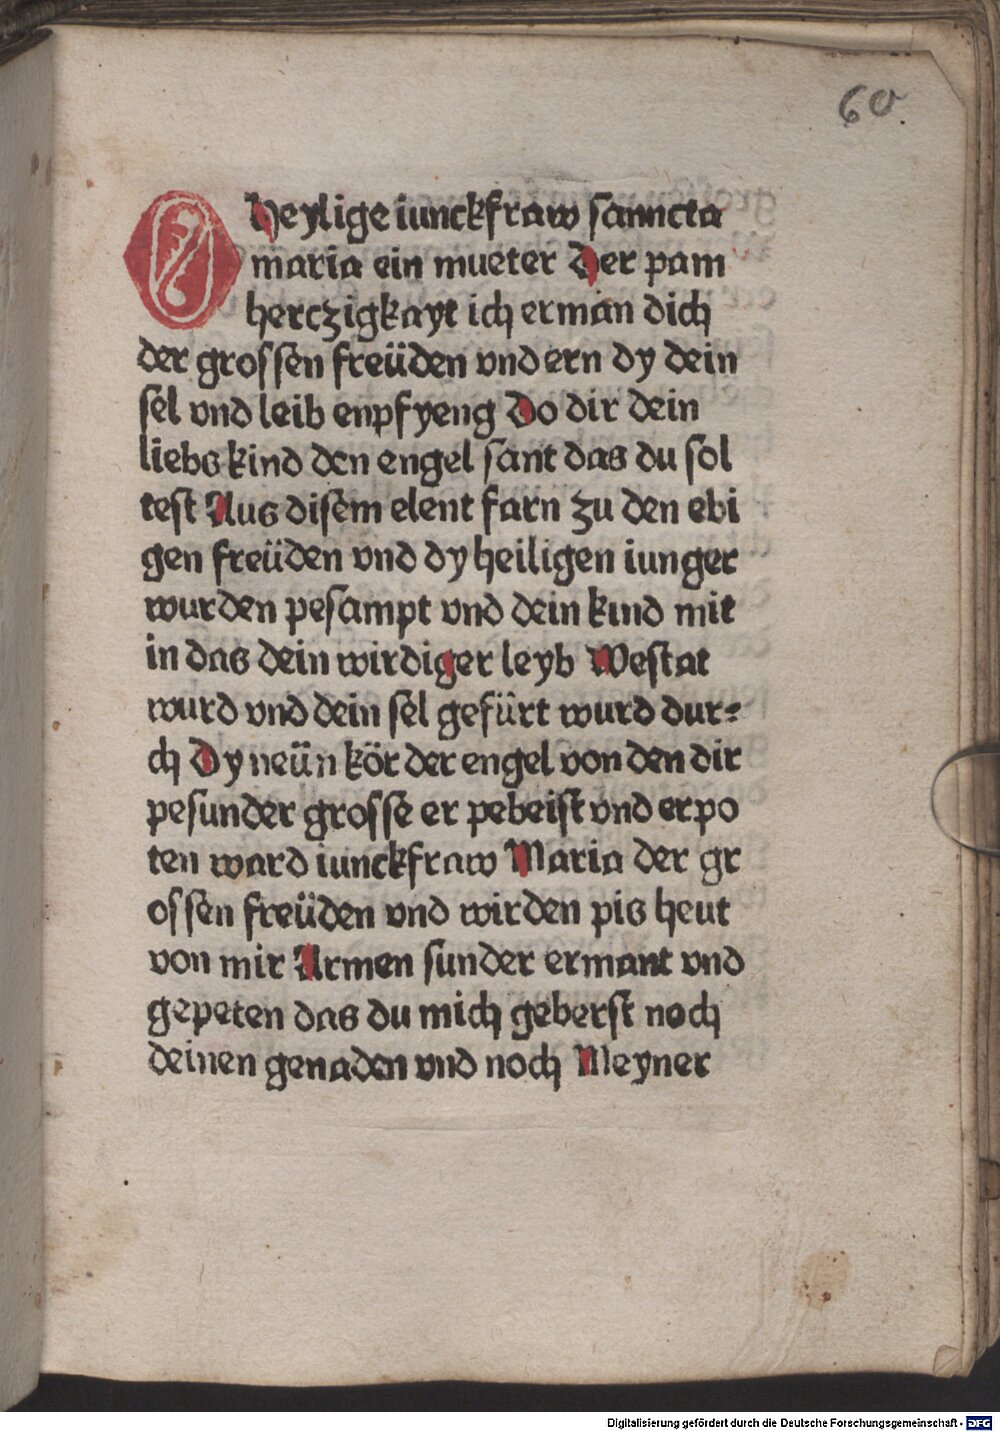 60.
O heylige iunckfraw sanncta
maria ein mueter Der pam
herczigkayt ich erman dich
der grossen freüden vnd ern dy dein
sel vnd leib enpfyeng Do dir dein
liebs kind den engel sant das du sol
test Aus disem elent farn zu den ebi
gen freüden vnd dy heiligen iunger
wurden pesampt vnd dein kind mit
in das dein wirdiger leyb Westat
wurd vnd dein sel gefürt wurd dur⸗
ch Dy neün kör der engel von den dir
pesunder grosse er pebeist vnd erpo
ten ward iunckfraw Maria der gr
ossen freüden vnd wirden pis heut
von mir Armen sunder ermant vnd
gepeten das du mich geberst noch
deinen genaden vnd noch Meyner
Digitalisierung gefördert durch die Deutsche Forschungsgemeinschaft - DFG